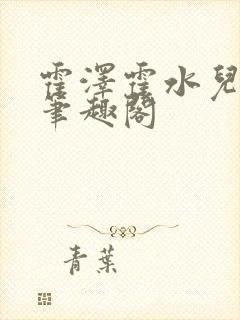 霍澤霍水兒
筆趣閣
青葉